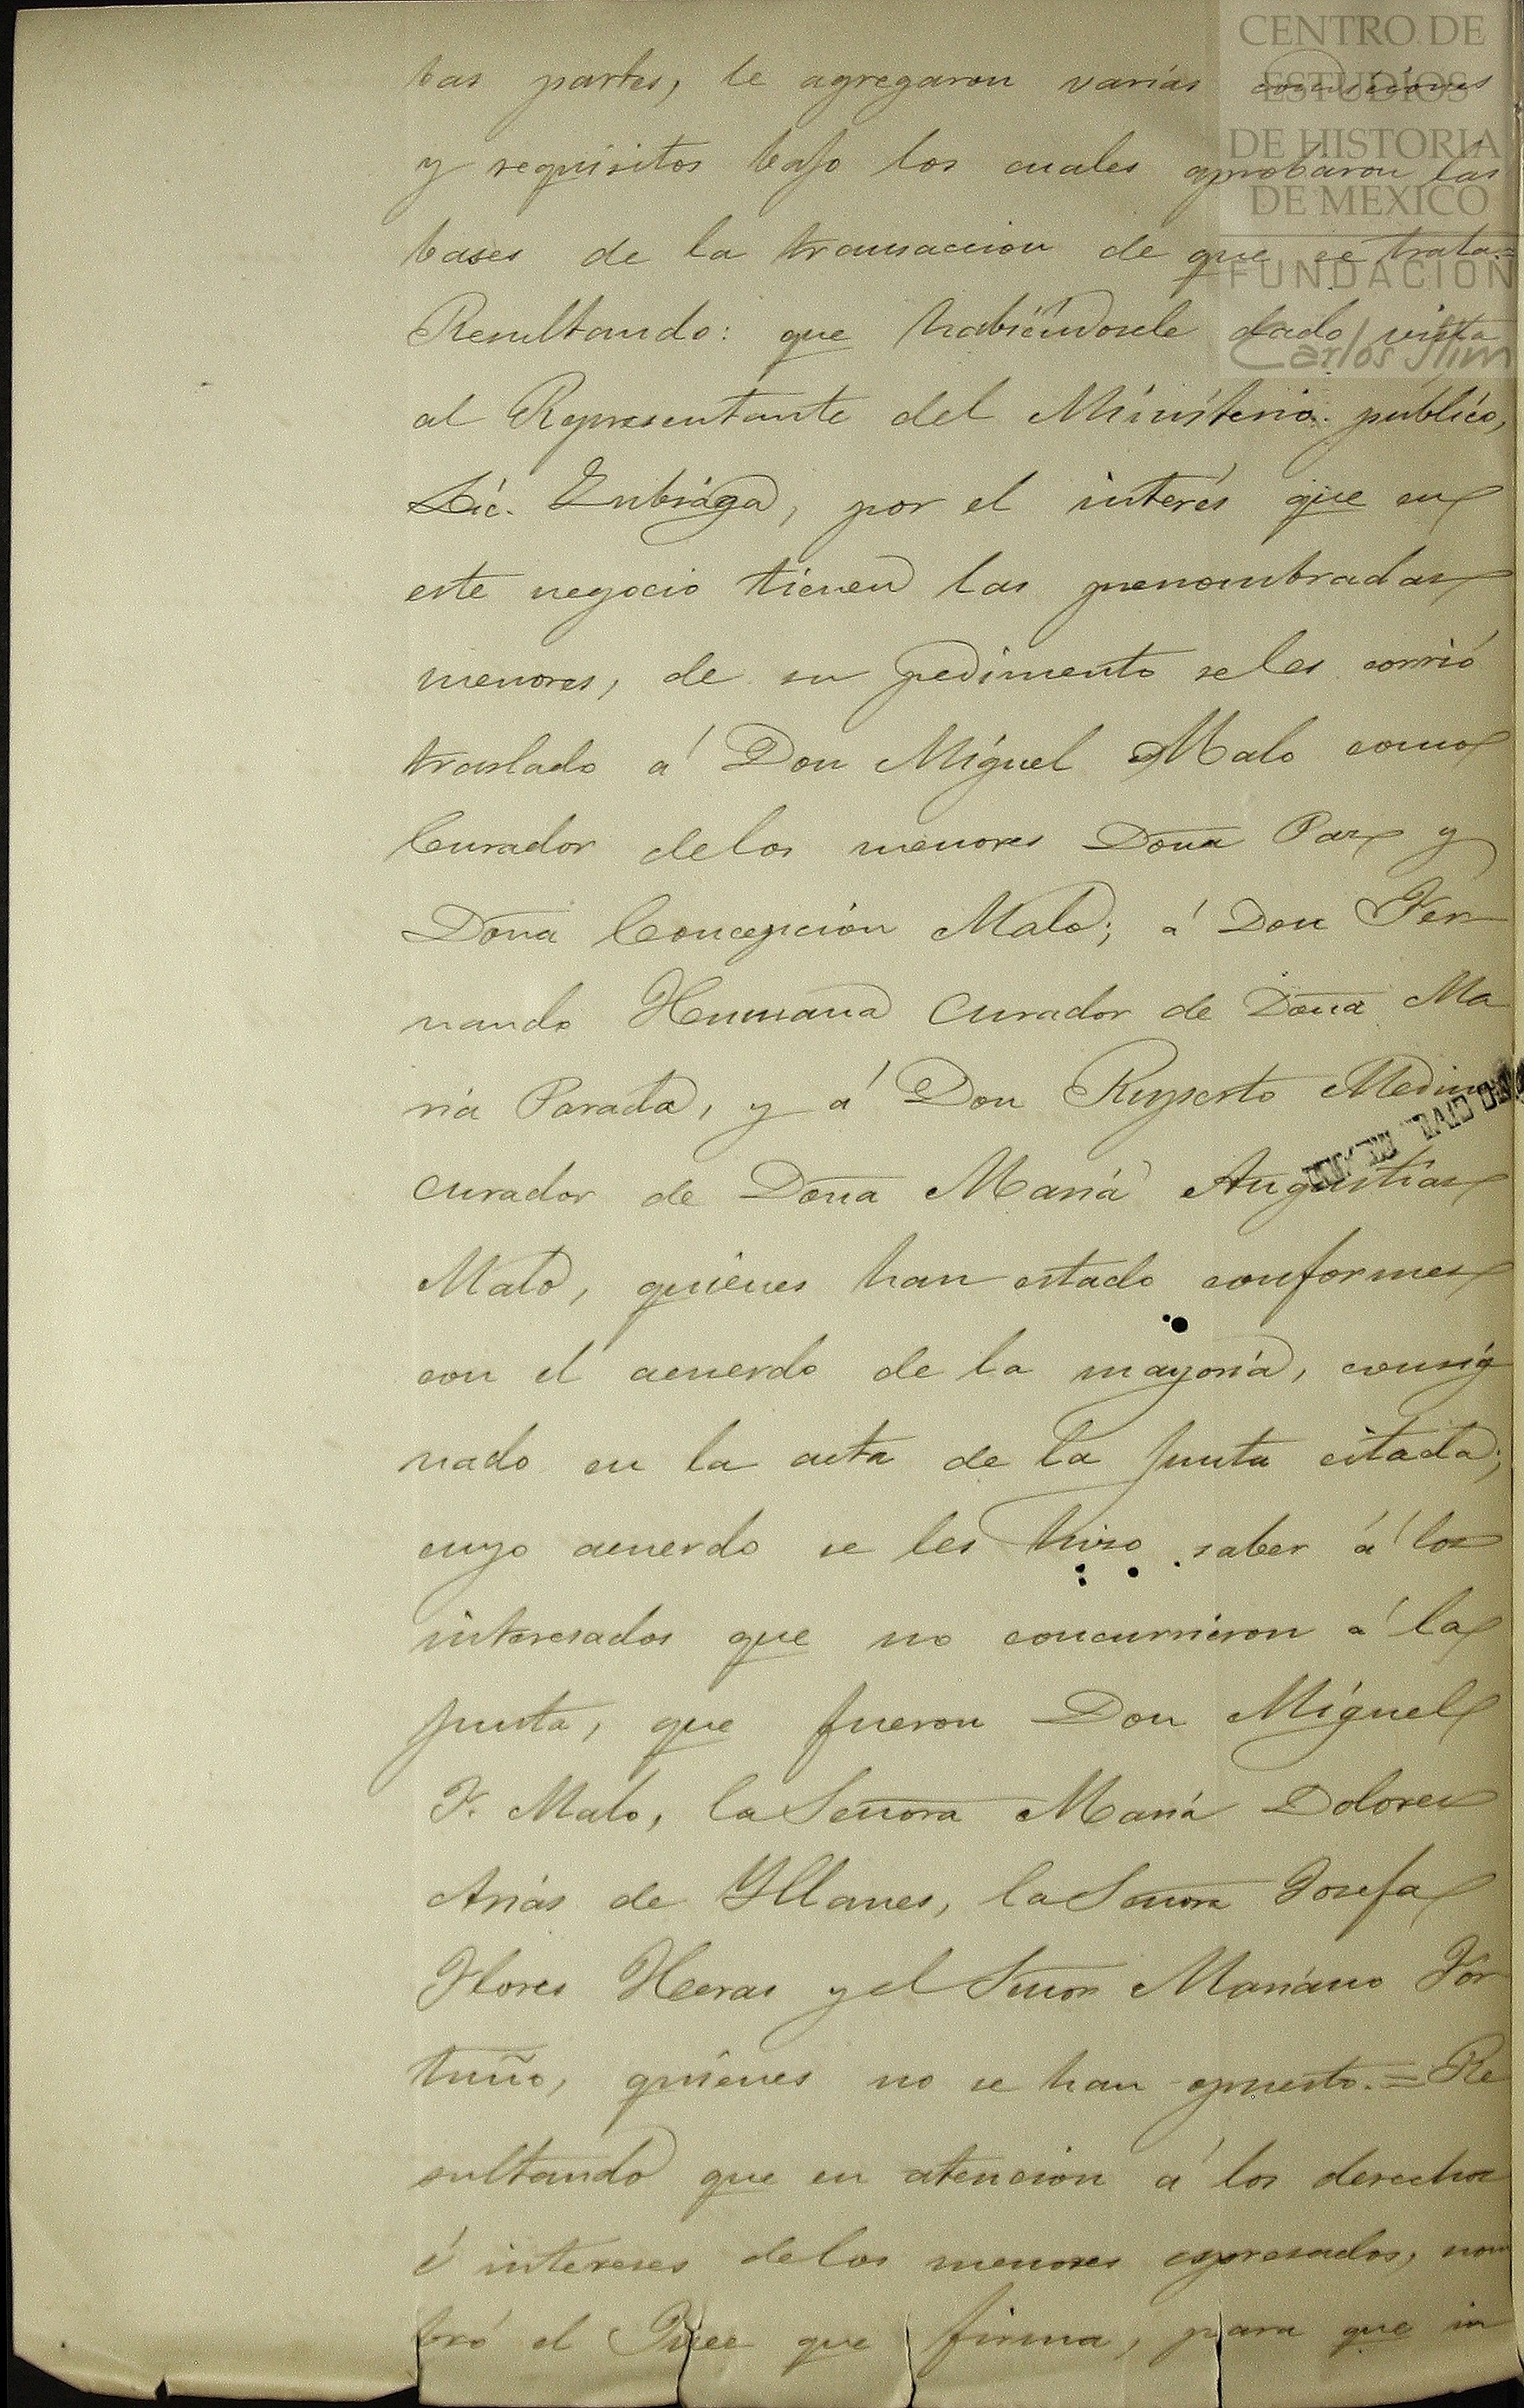 CENTRO DE
ESTUDIOS
DE HISTORIA
DE MEXICO
FUNDACION
Carlos Slim
bas partes, le agregaron varias
y requisitos bajo los cuales aprobaron las
bases de la transaccion de que se trata.=
Resultando: que habiéndosele dado vista
al Representante del Ministerio público,
Lic. Zubiaga, por el interés que en
este negocio tienen las prenombradas
menores, de su pedimento se les corrió
traslado á Don Miguel Malo como
Curador delos menores Doña Paz y
Doña Concepción Malo; á Don Fer
nando Humana Curador de Doña Ma
ria Parada, y á Don Ruperto Medina
curador de Doña Maria Angustias
Malo, quienes han estado conformes
con el acuerdo de la mayoría, consig
nado en la acta de la Junta citada;
cuyo acuerdo se les hizo saber á los
interesados que no concurrieron á la
Junta, que fueron Don Miguel
F. Malo, la Señora Maria Dolores
Arias de Yllanes, la Señora Josefa
Flores Heras y el Señor Mariano For
tuño, quienes no se han opuesto.= Re
sultando que en atencion á los derechos
é intereses delos menores espresados, nom
bró el Juez que firma, para que in